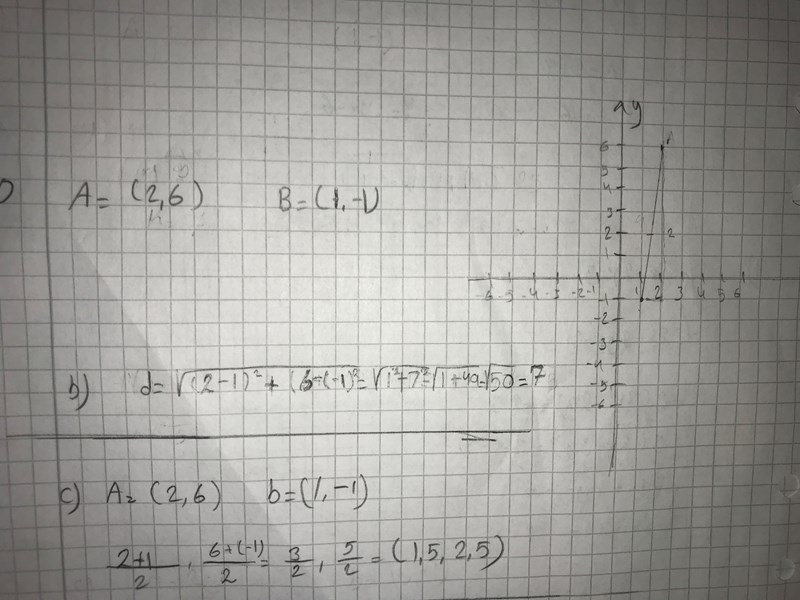 A = (2,6) B = (1,-1)
y
6
5
4
3
2
1
-6 -5 -4 -3 -2 -1 1 2 3 4 5 6
-1
-2
-3
-4
-5
-6
2
b) d = √(2-1)² + (6-(-1)² = √1²+7² = √1+49 = √50 = 7
c) A = (2,6) b = (1,-1)
2+1/2 , 6+(-1)/2 = 3/2 , 5/2 = (1,5, 2,5)